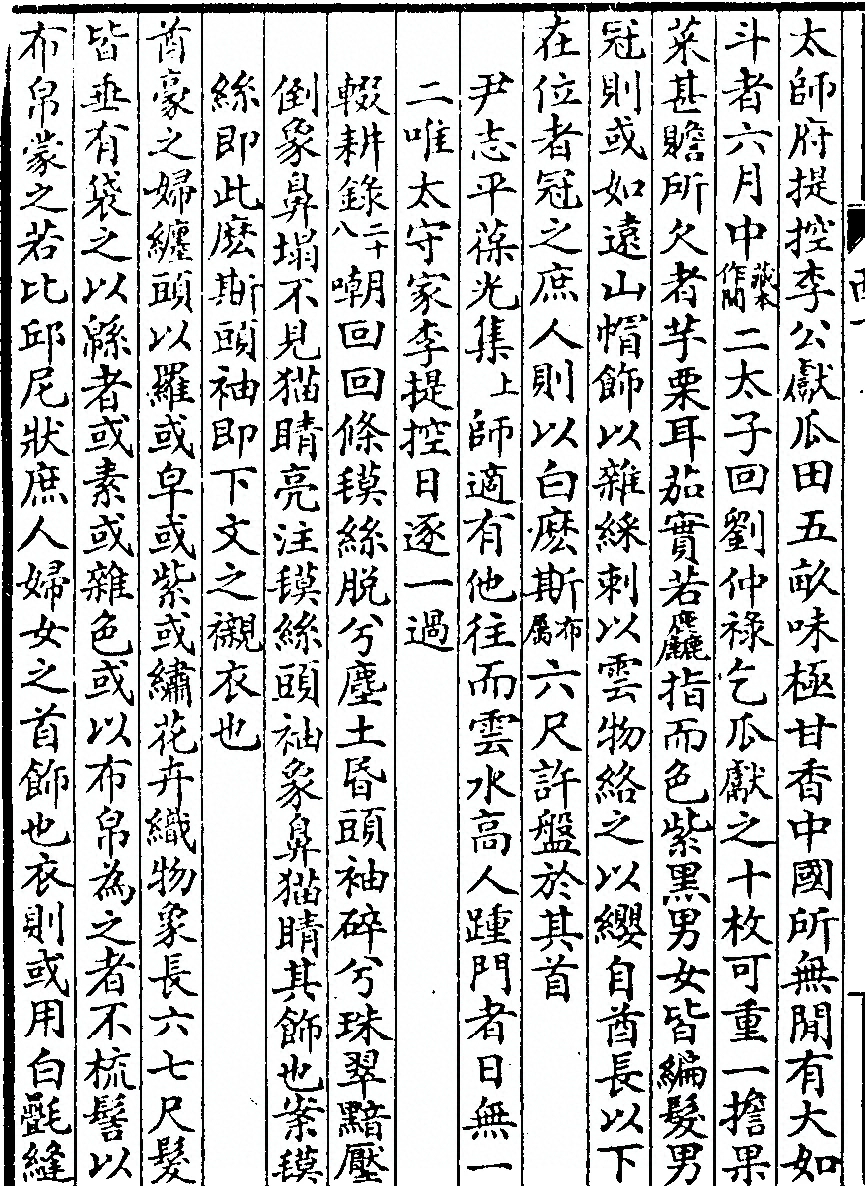 太師府提控李公獻瓜田五畝味極甘香中國所無聞有大如
斗者六月中藏本作閒二太子回劉仲祿乞瓜獻之十枚可重一擔果
菜甚贍所欠者芋栗耳茄實若麤指而色紫黑男女皆編髮男
冠則或如遠山帽飾以雜綵刺以雲物絡之以纓自酋長以下
在位者冠之庶人則以白麽斯布屬六尺許盤於其首
尹志平葆光集上師適有他往而雲水高人踵門者日無一
二唯太守家李提控日逐一過
輟耕錄二十八嘲回回條𣰽絲脫兮塵土昏頭袖碎兮珠翠黯壓
倒象鼻塌不見猫睛亮注𣰽絲頭袖象鼻猫睛其飾也案𣰽
絲即此麽斯頭袖即下文之襯衣也
酋豪之婦纏頭以羅或皁或紫或繡花卉織物象長六七尺髮
皆垂有袋之以緜者或素或雜色或以布帛為之者不梳髻以
布帛蒙之若比邱尼狀庶人婦女之首飾也衣則或用白㲲縫